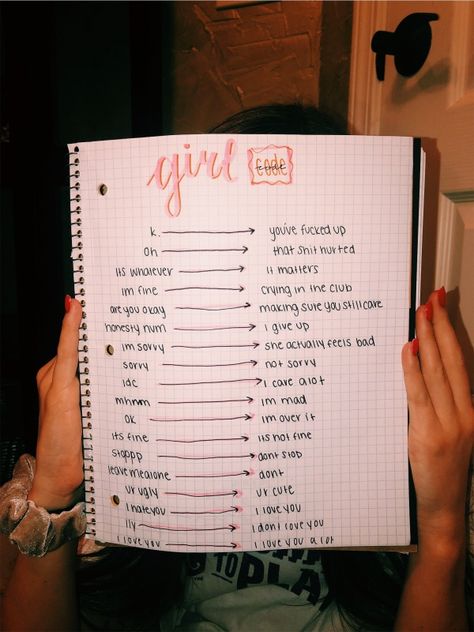 girl code
k. → you've fucked up
oh → that shit hurted
its whatever → it matters
im fine → crying in the club
are you okay → making sure you still care
honesty hum → i give up
im sorry → she actually feels bad
sorry → not sorry
idc → i care alot
mhmm → im mad
ok → im over it
its fine → its not fine
stoppp → dont stop
leave me alone → dont
ur ugly → ur cute
i hate you → i love you
ily → i dont love you
i love you → i love you a lot
TO PLA